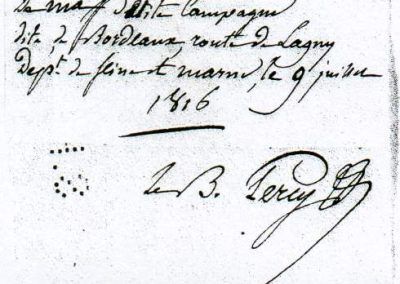 de ma petite Campagne
dite de Bordeaux, route de Lagny
Dept. de seine et marne, le 9 juillet
1816
le B. Percy